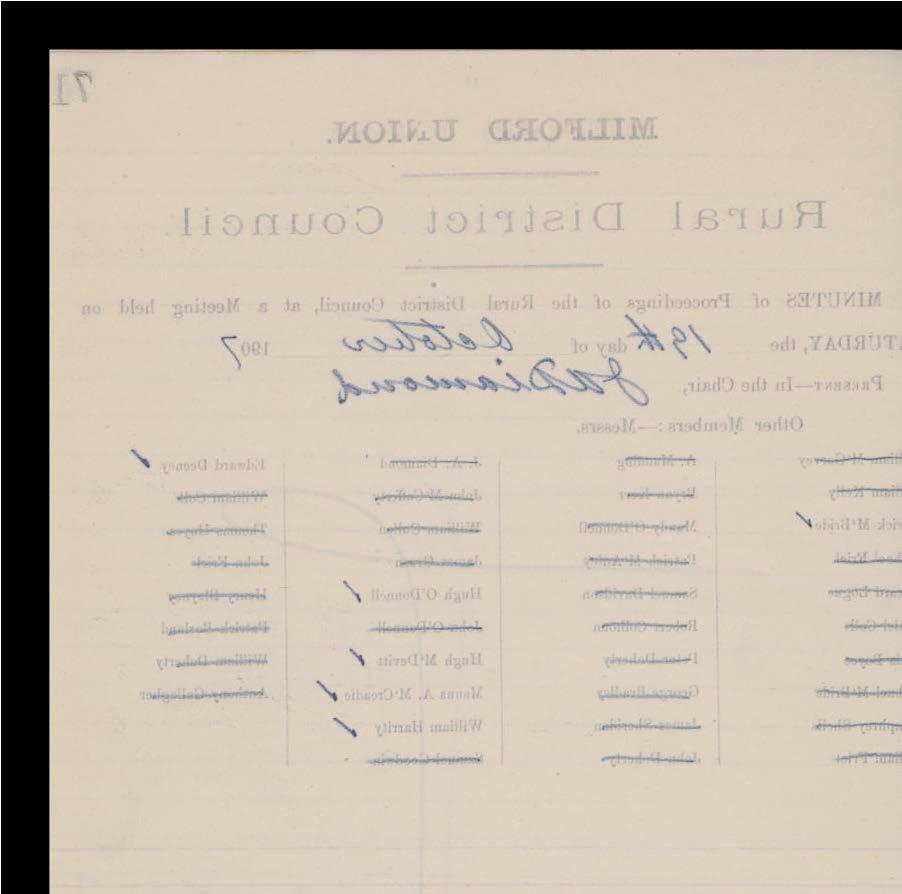 71
MILFORD UNION.
Rural District Council.
MINUTES of Proceedings of the Rural District Council, at a Meeting held on
ATURDAY, the 19th day of October 1907
PRESENT—In the Chair, JA Diamond
Other Members:—Messrs.
lliam McGarvey A. Manning J. A. Diamond Edward Deeney ✓
liam Kelly Bryan Kerr John McCafferty William Coll
rick McBride ✓ Mandy O'Donnell William Cullen Thomas Hayes
hael Friel Patrick McAuley James Green John Friel
ward Logue Samuel Davidson Hugh O'Donnell ✓ Henry Blayney
niel Coll Robert Colhoun John O'Donnell Patrick Borland
Boyce Peter Doherty Hugh McDevitt ✓ William Doherty
hael McBride George Bradley Manus A. McCreadie ✓ Anthony Gallagher
mphrey Sheils James Sheridan William Harrity ✓
liam Friel John Doherty Samuel